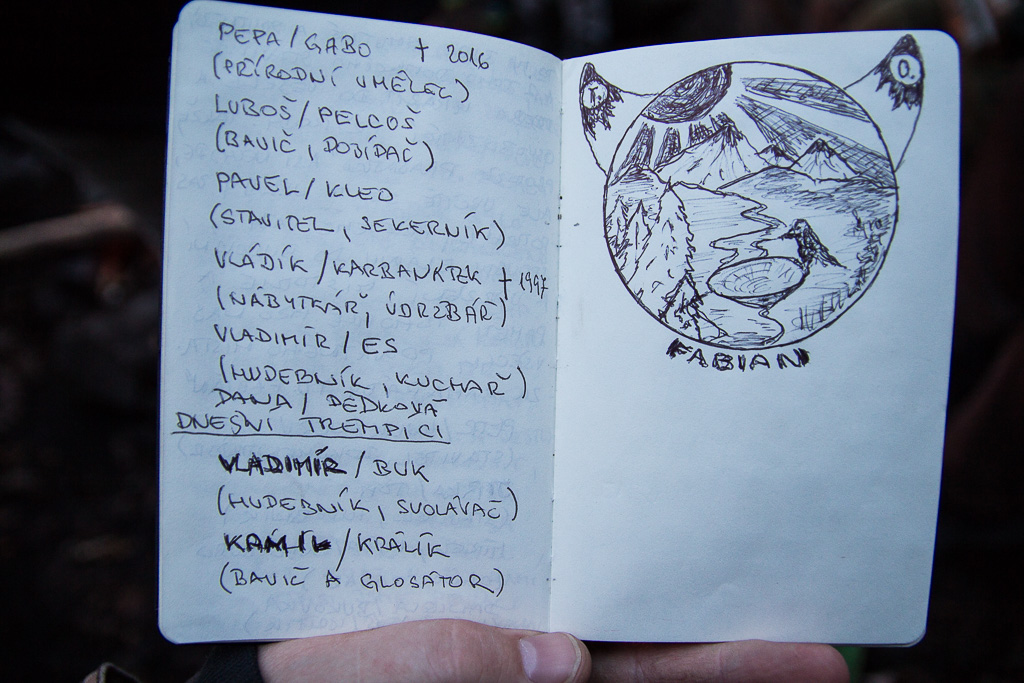 PEPA / GABO † 2016
(PŘÍRODNÍ UMĚLEC)
LUBOŠ / PELCOŠ
(BAVIČ, DOJÍDAČ)
PAVEL / KLED
(STAVITEL, SEKERNÍK)
VLÁDÍK / KARBANÁTEK † 1997
(NÁBYTKÁŘ, ÚDRZBÁŘ)
VLADIMÍR / ES
(HUDEBNÍK, KUCHAŘ)
DANA / DĚDKOVÁ
DNEŠNÍ TREMPÍCI
VLADIMÍR / BUK
(HUDEBNÍK, SVOLÁVAČ)
KAMIL / KRÁLÍK
(BAVIČ A GLOSÁTOR)
T. O.
FABIAN